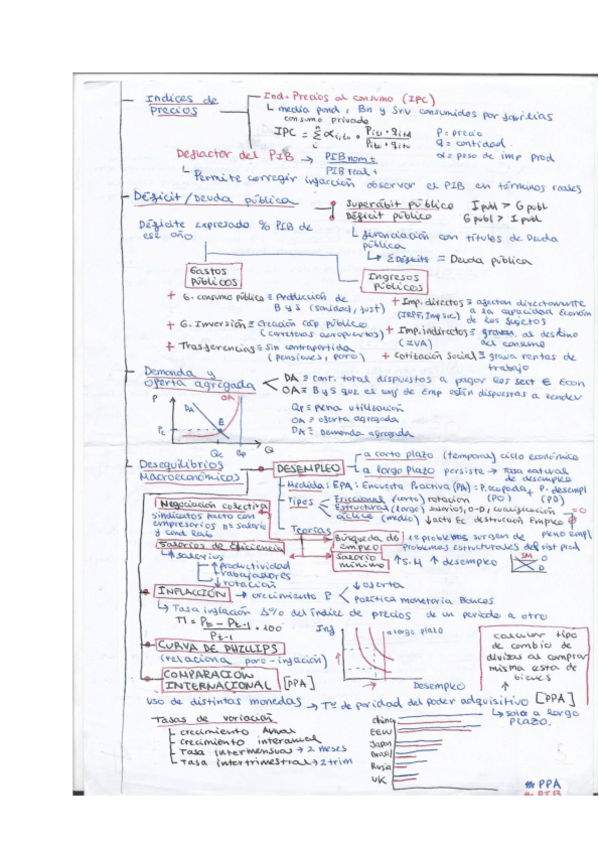 Indices de precios
Ind. Precios al consumo (IPC)
media pond. Bn y Srv consumidos por familias
consumo privado
IPC =
P = precio
q = cantidad
α = peso de imp prod
Deflactor del PIB → PIB nom t / PIB real t
Permite corregir inflación observar el PIB en términos reales
Déficit/Deuda pública
Superábit público I publ > G publ
Déficit público G publ > I publ
Déficite expresado % PIB de ese año
financiación con títulos de Deuda pública
Σ Déficits = Deuda pública
Gastos Públicos
Ingresos Públicos
+ G. consumo público ≡ Producción de B y S (sanidad, just)
+ G. Inversión ≡ Creación cap público (carreteras aeropuertos)
+ Trasferencias ≡ sin contrapartida (pensiones, paro)
+ Imp. directos ≡ afectan directamente a la capacidad económ de los sujetos
(IRPF, Imp soc)
+ Imp. indirectos ≡ gravan al destino del consumo
(IVA)
+ Cotización Social ≡ grava rentas de trabajo
Demanda y oferta agregada
DA ≡ cant. total dispuestos a pagar los sect Econ
OA ≡ B y S que el de Emp están dispuestas a vender
P
DA
OA
E
Pe
Qe
Qp
Q
Qp ≡ plena utilización
OA ≡ oferta agregada
DA ≡ Demanda agregada
Desequilibrios Macroeconómicos
DESEMPLEO
a corto plazo (temporal) ciclo económico
a largo plazo persiste → tasa natural de desempleo
Medida: EPA: Encuesta P.activa (PA) = P.ocupada + P. desempl
(PO) (PD)
Tipos
Friccional (corto) rotación
Estructural (largo) salarios, O-D, cualificación
Cíclico (medio) ↓ acto Ec destrucción Empleo
pleno empl
Teorías
Negociación colectiva
sindicatos pacto con empresarios salario y cond lab
Salarios de Eficiencia
↑ salarios
↑ Productividad trabajadores
↓ rotación
Búsqueda de empleo
problemas surgen de problemas estructurales del sist prod
Salario mínimo
↑ S.M ↑ desempleo
SM
O
D
INFLACCIÓN → crecimiento P
↓ oferta
Política monetaria Bancos
Tasa inflación Δ% del índice de precios de un periodo a otro
TI = Pt - Pt-1 / Pt-1 • 100
CURVA DE PHILLIPS
(relaciona paro - inflación)
Inf
a largo plazo
Desempleo
calcular tipo de cambio de divisas al comprar misma cesta de bienes
COMPARACIÓN INTERNACIONAL [PPA]
uso de distintas monedas → Tª de paridad del poder adquisitivo [PPA]
solo a largo PLAZO.
Tasas de variación
crecimiento Anual
crecimiento interanual
Tasa intermensual → 2 meses
Tasa intertrimestral → 2 trim
China
EEUU
Japon
Brasil
Rusia
UK
PPA
PIB